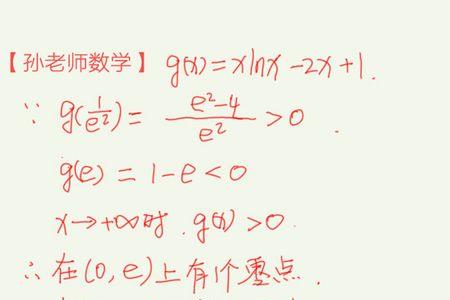 【孙老师数学】 g(x)=xlnx-2x+1.
∵ g(1/e²)= (e²-4)/e² >0 .
g(e) = 1-e<0
x→+∞时. g(x)>0.
∴ 在(0, e)上有个零点.